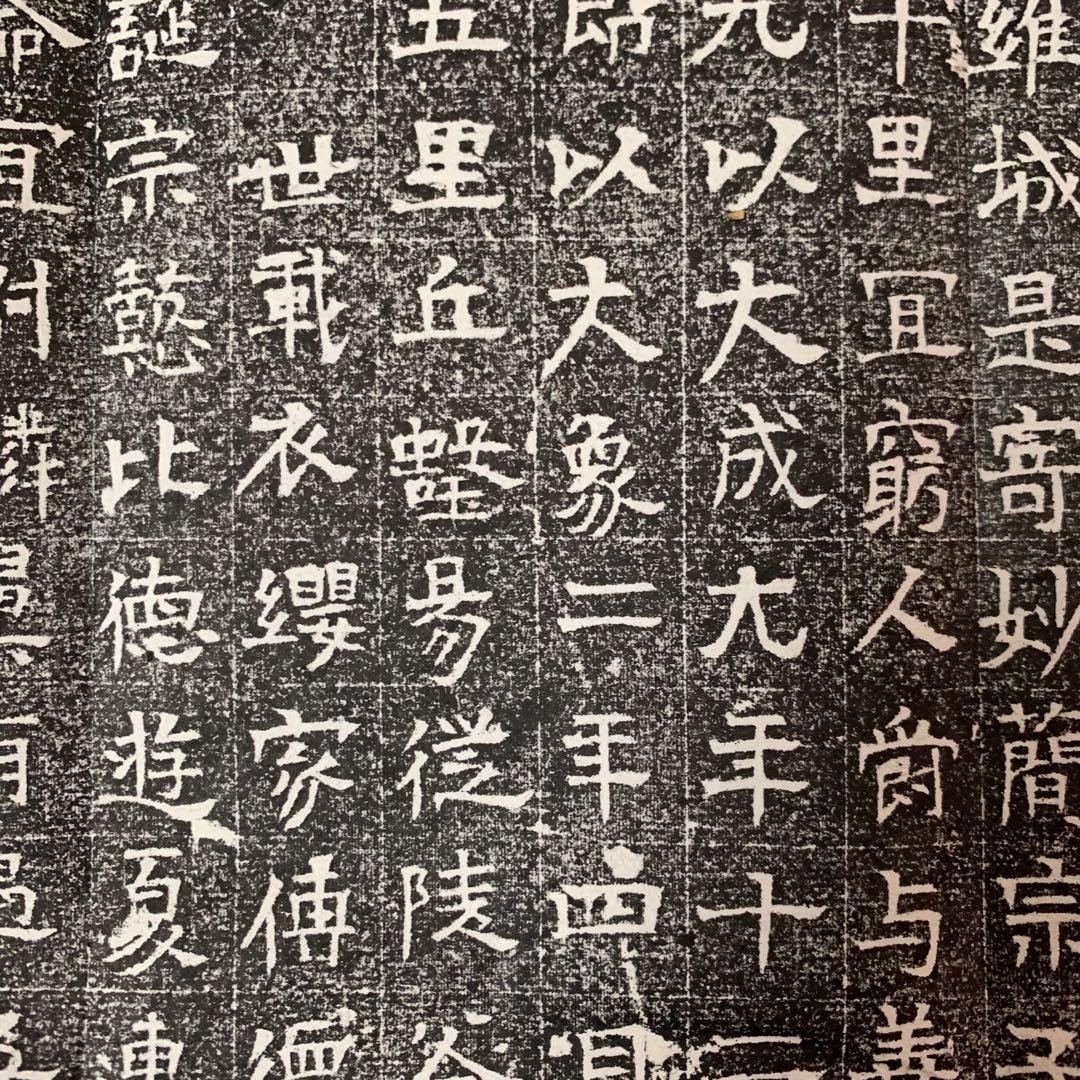 維城是寄妙簡宗子
十里冝窮人爵与善
九以大成元年十二
郎以大象二年四月
五里丘壑易從陵谷
世載衣纓家傳
誕宗懿比德遊夏